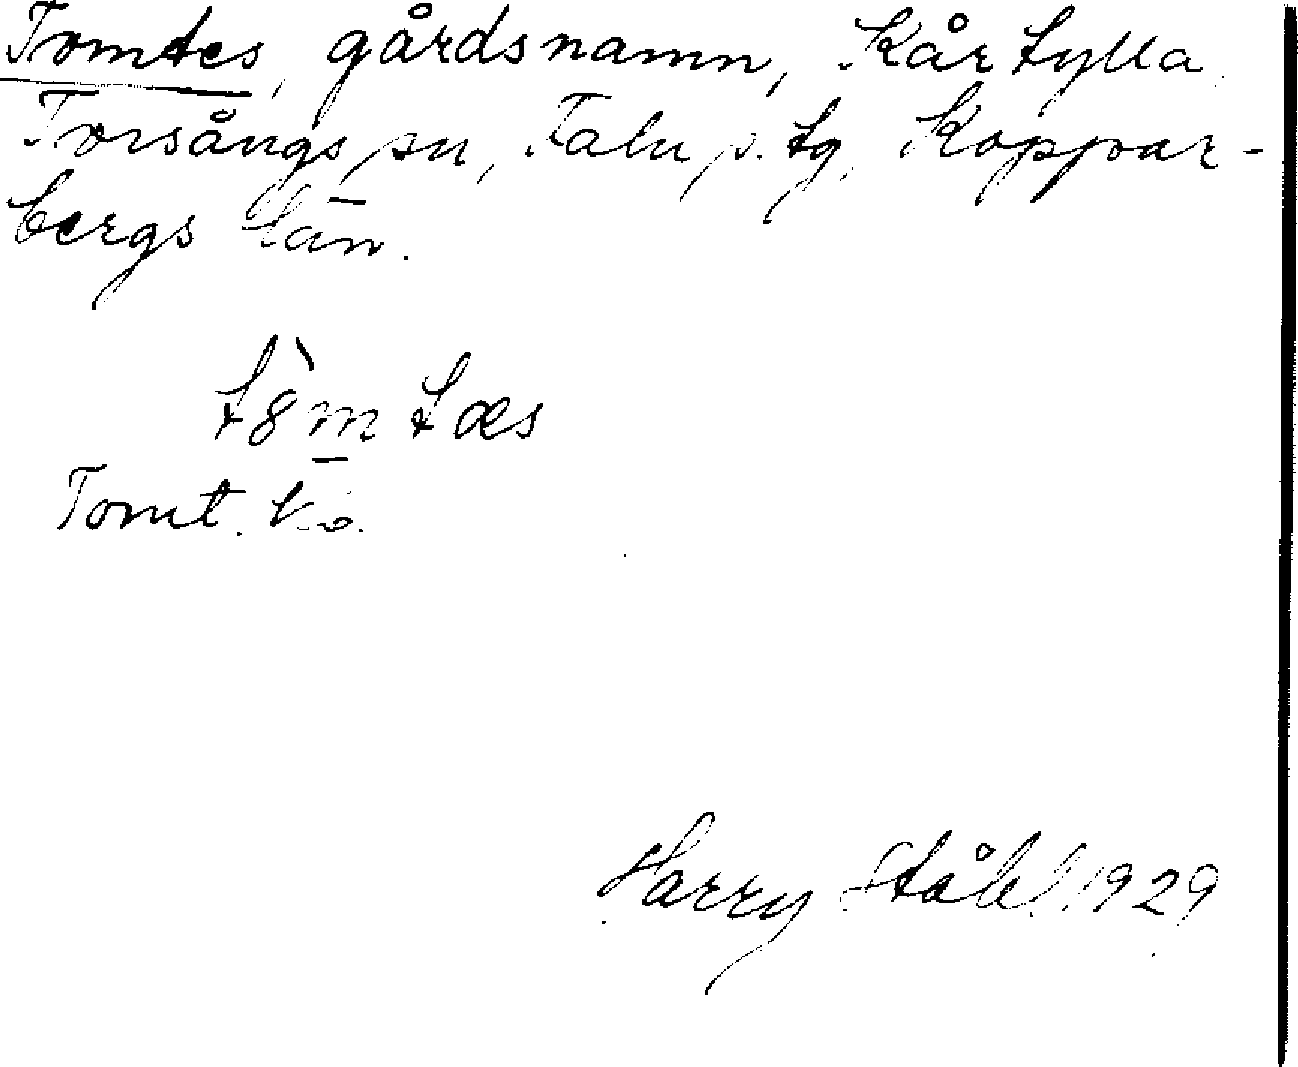 Tomtes, gårdsnamn, Kårtylla
Torsångs sn, Falu s. tg, Koppar-
bergs län.
t8̀m̲tæs
Tomt.
Harry Ståhl 1929